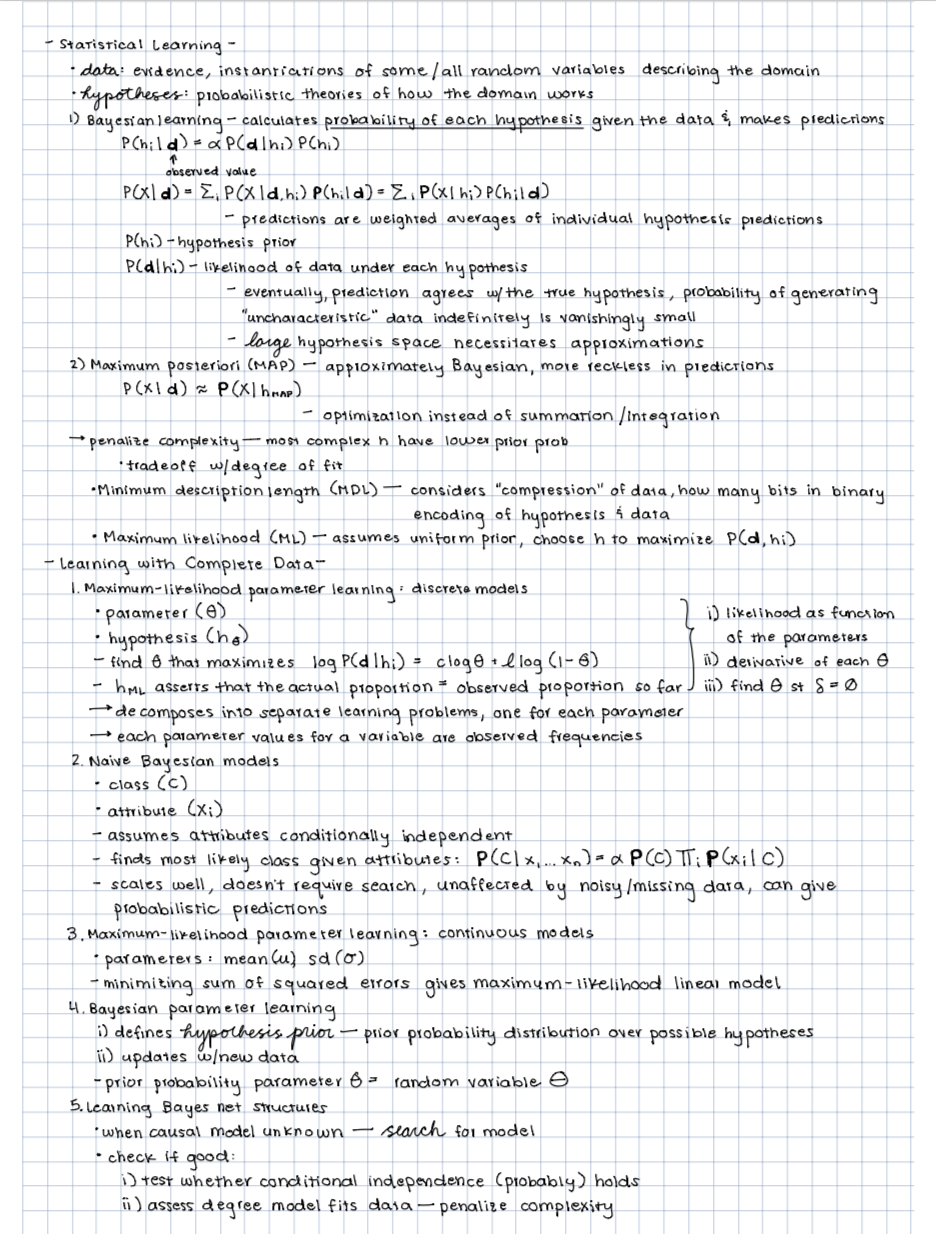 - Statistical Learning -
• data: evidence, instantiations of some/all random variables describing the domain
• hypotheses: probabilistic theories of how the domain works
1) Bayesian learning - calculates probability of each hypothesis given the data & makes predictions
P(hi|d) = α P(d|hi) P(hi)
↑
observed value
P(X|d) = Σi P(X|d,hi) P(hi|d) = Σi P(X|hi) P(hi|d)
- predictions are weighted averages of individual hypothesis predictions
P(hi) - hypothesis prior
P(d|hi) - likelihood of data under each hypothesis
- eventually, prediction agrees w/the true hypothesis, probability of generating
"uncharacteristic" data indefinitely is vanishingly small
- large hypothesis space necessitates approximations
2) Maximum posteriori (MAP) - approximately Bayesian, more reckless in predictions
P(X|d) ≈ P(X|hMAP)
- optimization instead of summation/integration
→ penalize complexity — most complex h have lower prior prob
• tradeoff w/degree of fit
• Minimum description length (MDL) — considers "compression" of data, how many bits in binary
encoding of hypothesis & data
• Maximum likelihood (ML) - assumes uniform prior, choose h to maximize P(d,hi)
- Learning with Complete Data -
1. Maximum-likelihood parameter learning: discrete models
• parameter (θ) } i) likelihood as function
• hypothesis (hθ) of the parameters
- find θ that maximizes log P(d|hi) = clogθ + ℓlog(1-θ) ii) derivative of each θ
- hML asserts that the actual proportion = observed proportion so far iii) find θ st δ = ∅
→ decomposes into separate learning problems, one for each parameter
→ each parameter values for a variable are observed frequencies
2. Naive Bayesian models
• class (C)
• attribute (Xi)
- assumes attributes conditionally independent
- finds most likely class given attributes: P(C|x1...xn) = α P(C) Πi P(xi|C)
- scales well, doesn't require search, unaffected by noisy/missing data, can give
probabilistic predictions
3. Maximum-likelihood parameter learning: continuous models
• parameters: mean(u) sd(σ)
- minimizing sum of squared errors gives maximum-likelihood linear model
4. Bayesian parameter learning
i) defines hypothesis prior — prior probability distribution over possible hypotheses
ii) updates w/new data
- prior probability parameter θ = random variable Θ
5. Learning Bayes net structures
• when causal model unknown — search for model
• check if good:
i) test whether conditional independence (probably) holds
ii) assess degree model fits data — penalize complexity